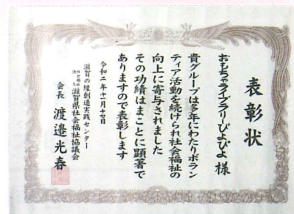 表彰状
おもちゃライブラリぴよぴよ 様
貴グループは多年にわたりボラン
ティア活動を続けられ社会福祉の
向上に寄与されました
その功績はまことに顕著で
ありますので表彰します
令和二年十一月十七日
滋賀の縁創造実践センター
滋賀県社会福祉協議会
会長 渡邉光春